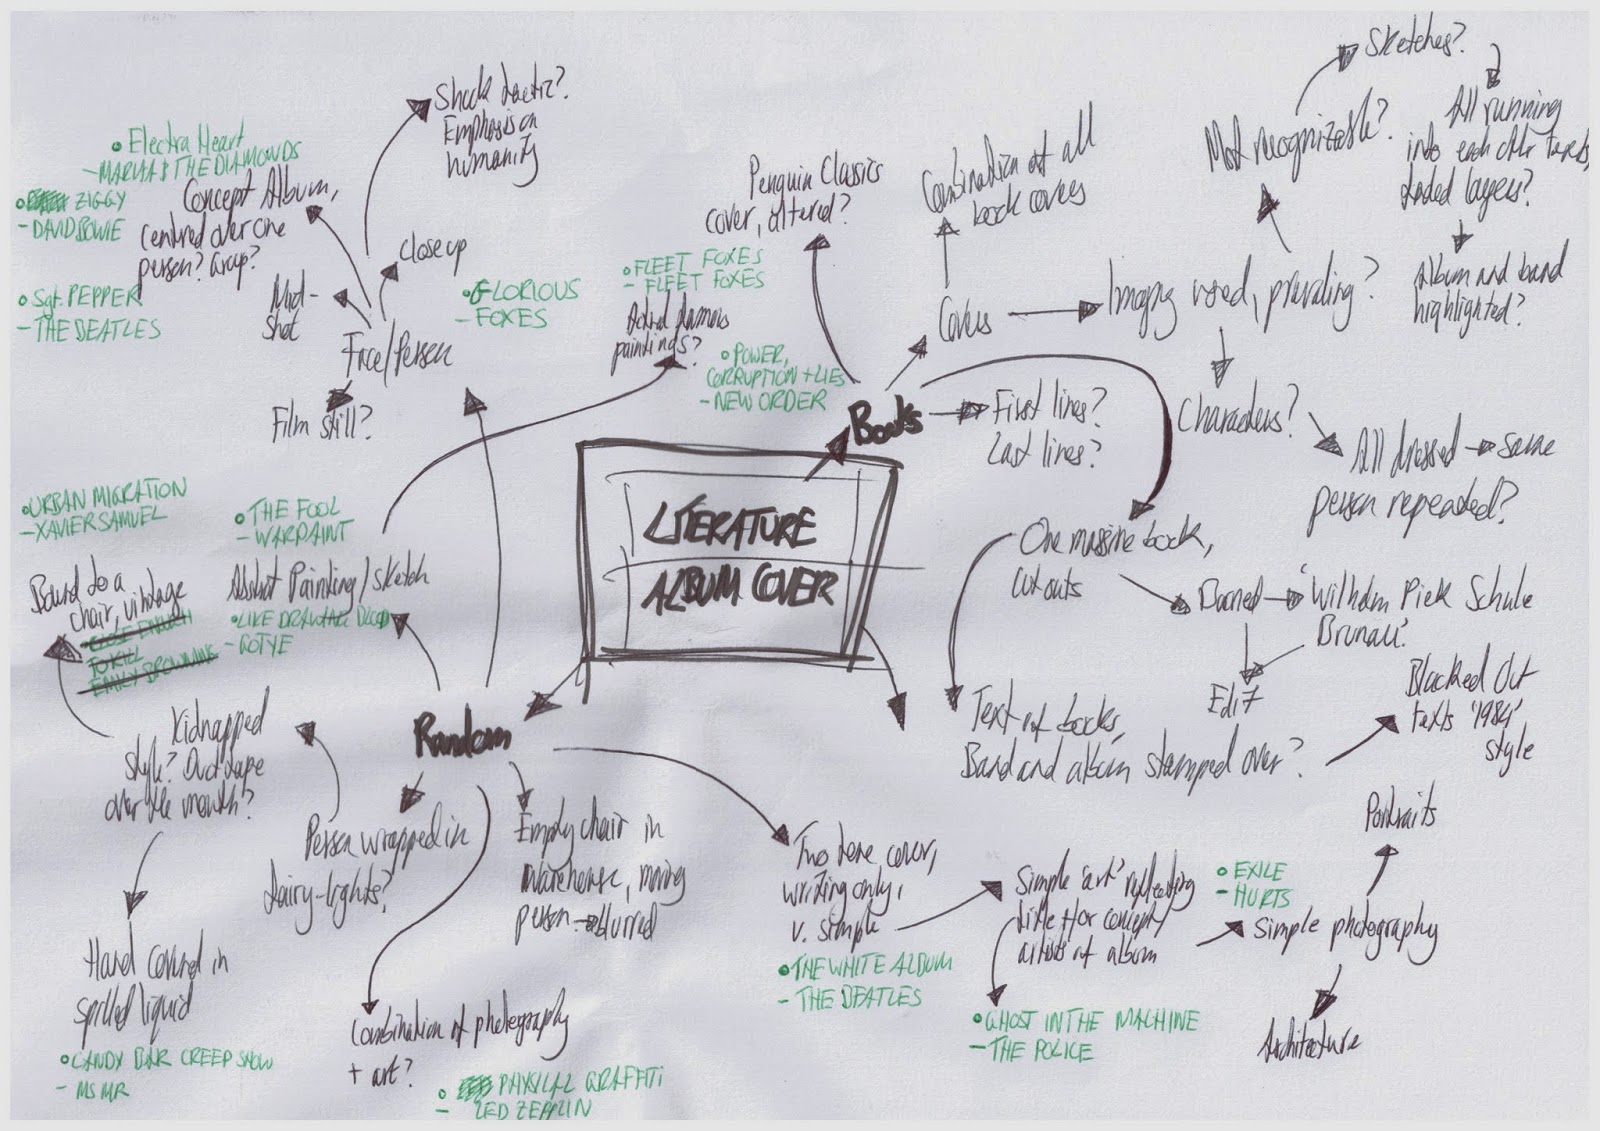 Sketches?
All running
into each other
layers?
Album and band
highlighted?
Most recognizable?
Shock tactic?
Emphasis on
humanity
• Electra Heart
- MARINA & THE DIAMONDS
• ZIGGY
- DAVID BOWIE
Concept Album,
centred over one
person? Group?
• Sgt. PEPPER
- THE BEATLES
Close up
Mid-
Shot
Face/Person
Film still?
• GLORIOUS
- FOXES
Penguin Classics
cover, altered?
• FLEET FOXES
- FLEET FOXES
paintings?
• POWER,
CORRUPTION + LIES
- NEW ORDER
Combination of all
book covers
Covers
Imagery used, prevailing?
Books
First lines?
Last lines?
Characters?
All dressed → same
person repeated?
LITERATURE
ALBUM COVER
One massive book,
cut outs
Burned
'Wilhelm Pieck Schule
Edit
Text of books,
Band and album stamped over?
Blacked Out
texts '1984'
style
• URBAN MIGRATION
- XAVIER SAMUEL
Bound to a
chair, vintage
TO KILL
EMILY BROWNING
• THE FOOL
- WARPAINT
Abstract Painting/Sketch
• LIKE DRAWING BLOOD
- GOTYE
Random
Kidnapped
style? Duct tape
over the mouth?
Person wrapped in
fairy-lights?
Hand covered in
spilled liquid
• CANDY BAR CREEP SHOW
- MS MR
Empty chair in
warehouse, moving
person → blurred
Combination of photography
+ art?
• PHYSICAL GRAFFITI
- LED ZEPPLIN
Two tone cover,
writing only,
v. simple
• THE WHITE ALBUM
- THE BEATLES
Simple 'art' reflecting
title +/or concept/
artists of album
• GHOST IN THE MACHINE
- THE POLICE
• EXILE
- HURTS
Simple photography
Portraits
Architecture